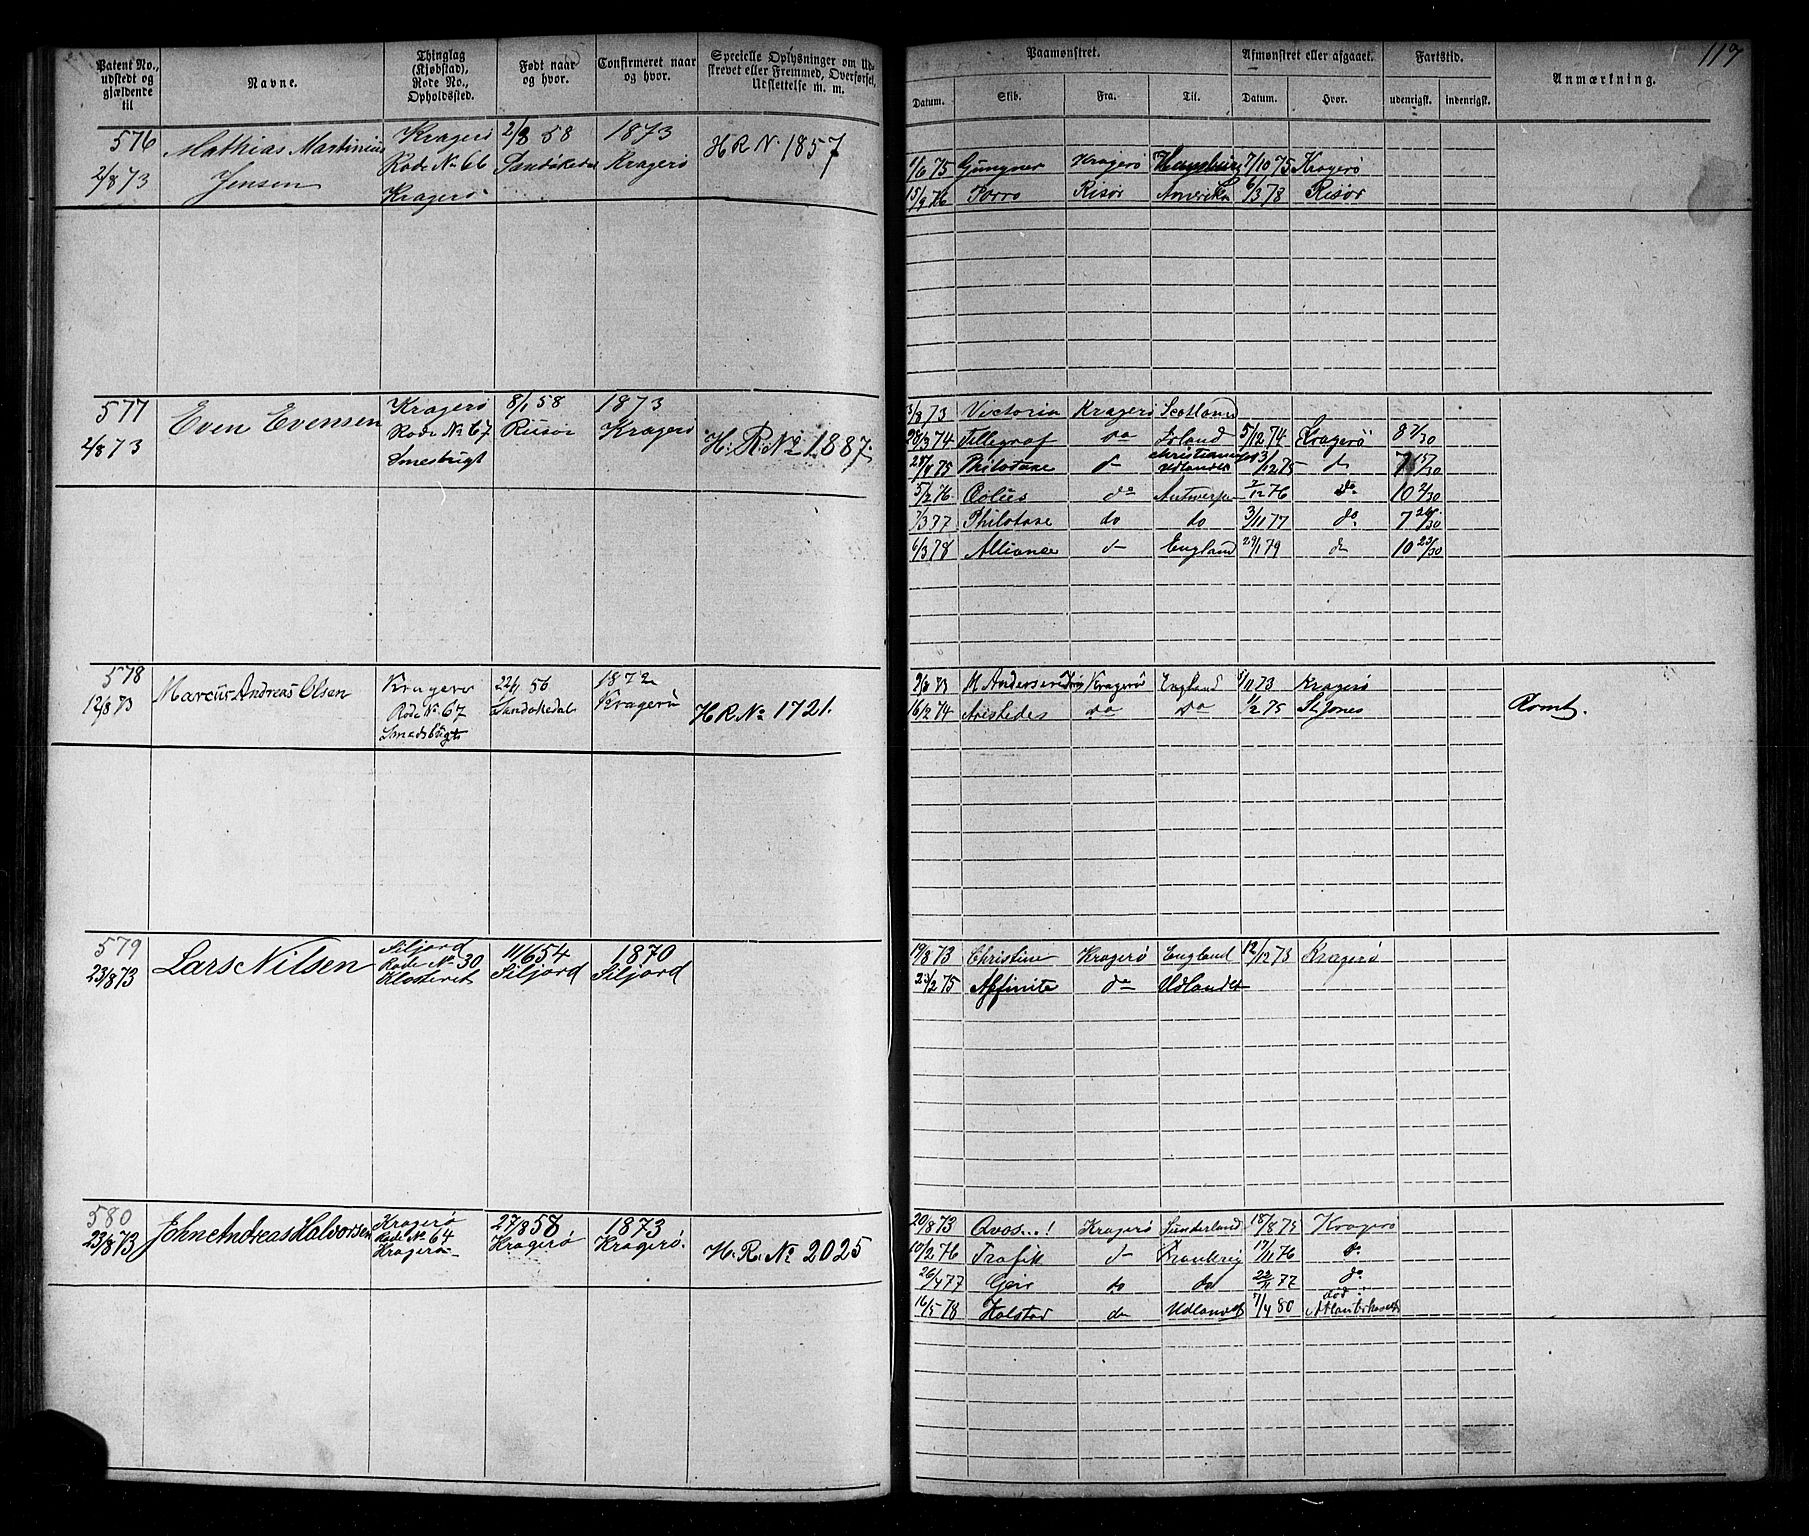 117
Patent No., udstedt og gjældende til
Navne.
Thinglag (Kjøbstad), Rode No., Opholdssted.
Født naar og hvor.
Confirmeret naar og hvor.
Specielle Oplysninger om Udskrevet eller Fremmed, Overførsel, Udslettelse m. m.
Paamønstret.
Datum. Skib. Fra. Til.
Afmønstret eller afgaaet.
Datum. Hvor.
Fartstid.
udenrigsk. indenrigsk.
Anmærkning.
576 Mathias Martinius Kragerø 2/8 58 1873 H R N. 1857
2/8 73 Jensen Rode No 66 Sandøkedal Kragerø
Kragerø
1/6 75 Gungner Kragerø Hamburg 7/10 75 Kragerø
15/9 76 Torro Risør Amerika 6/3 78 Risør
577 Even Evensen Kragerø 8/1 58 1873 H. R. No 1887.
2/8 73 Rode No 67 Risør Kragerø
Smesbugt
3/8 73 Victoria Kragerø Scotland
28/3 74 Tellegraf do Irland 5/12 74 Kragerø 8 7/30
Philotaxe d- Udlandet 3/12 75 d- 7 15/30
5/2 76 Eolus do Antwerpen 2/12 76 do 10 2/30
1/3 77 Philotaxe do do 3/11 77 do 7 26/30
6/3 78 Alliance d- England 29/1 79 d- 10 23/30
578 Marcus Andreas Olsen Kragerø 22/1 56 1872 H R No 1721.
12/8 73 Rode No 67 Sandøkedal Kragerø
Smedsbugt
9/8 73 M Andersen Kragerø England 73 Kragerø
16/2 74 Aristedes do do 1/2 75 St Jones Rømt.
579 Lars Nilsen Siljord 11/6 54 1870
23/8 73 Rode No 30 Siljord Siljord
Klosteret
19/8 73 Christine Kragerø England 12/12 73 Kragerø
2 75 Affinite do Udlandet
580 John Andreas Halvorsen Kragerø 27/8 58 1873 H. R. No 2025
23/8 73 Rode No 64 Kragerø Kragerø.
Kragerø
20/8 73 Avos...! Kragerø Sunderland 18/8 75 Kragerø
10/2 76 Trafik d- 17/11 76 do
26/4 77 Geir do do 22/11 77 do
16/5 78 Halstad do Udlandet 7/4 80 død i Atlanterhavet